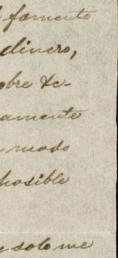 famente
dinero,
obre te-
amente
modo
posible
solo me